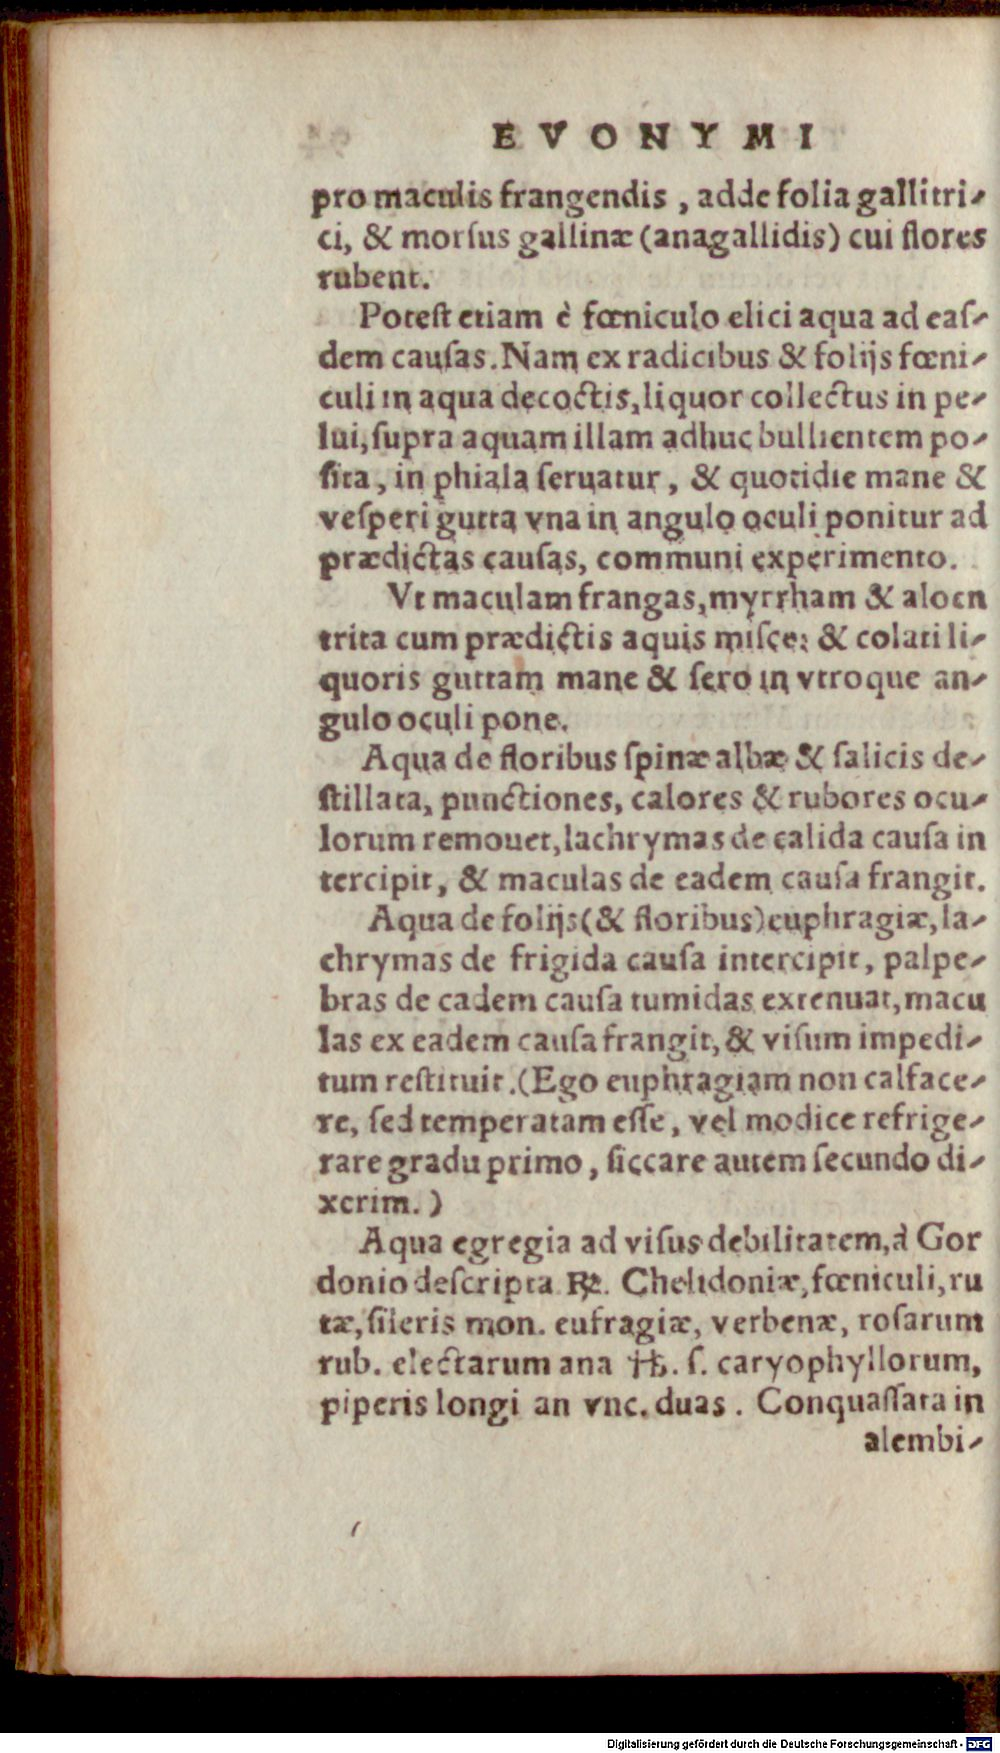 EVONYMI
pro maculis frangendis, adde folia gallitri-
ci, & morſus gallinæ (anagallidis) cui flores
rubent.
Poteſt etiam è fœniculo elici aqua ad eaſ-
dem cauſas. Nam ex radicibus & folijs fœni-
culi in aqua decoctis, liquor collectus in pe-
lui, ſupra aquam illam adhuc bullientem po-
ſita, in phiala ſeruatur, & quotidie mane &
veſperi gutta vna in angulo oculi ponitur ad
prædictas cauſas, communi experimento.
Vt maculam frangas, myrrham & aloen
trita cum prædictis aquis miſce: & colati li-
quoris guttam mane & ſero in vtroque an-
gulo oculi pone.
Aqua de floribus ſpinæ albæ & ſalicis de-
ſtillata, punctiones, calores & rubores ocu-
lorum remouet, lachrymas de calida cauſa in
tercipit, & maculas de eadem cauſa frangit.
Aqua de folijs (& floribus) euphragiæ, la-
chrymas de frigida cauſa intercipit, palpe-
bras de eadem cauſa tumidas extenuat, macu
las ex eadem cauſa frangit, & viſum impedi-
tum reſtituit. (Ego euphragiam non calface-
re, ſed temperatam eſſe, vel modice refrige-
rare gradu primo, ſiccare autem ſecundo di-
xerim.)
Aqua egregia ad viſus debilitatem, à Gor
donio deſcripta ℞. Chelidoniæ, fœniculi, ru
tæ, ſileris mon. eufragiæ, verbenæ, roſarum
rub. electarum ana ℔. ſ. caryophyllorum,
piperis longi an vnc. duas. Conquaſſata in
alembi-
Digitalisierung gefördert durch die Deutsche Forschungsgemeinschaft - DFG